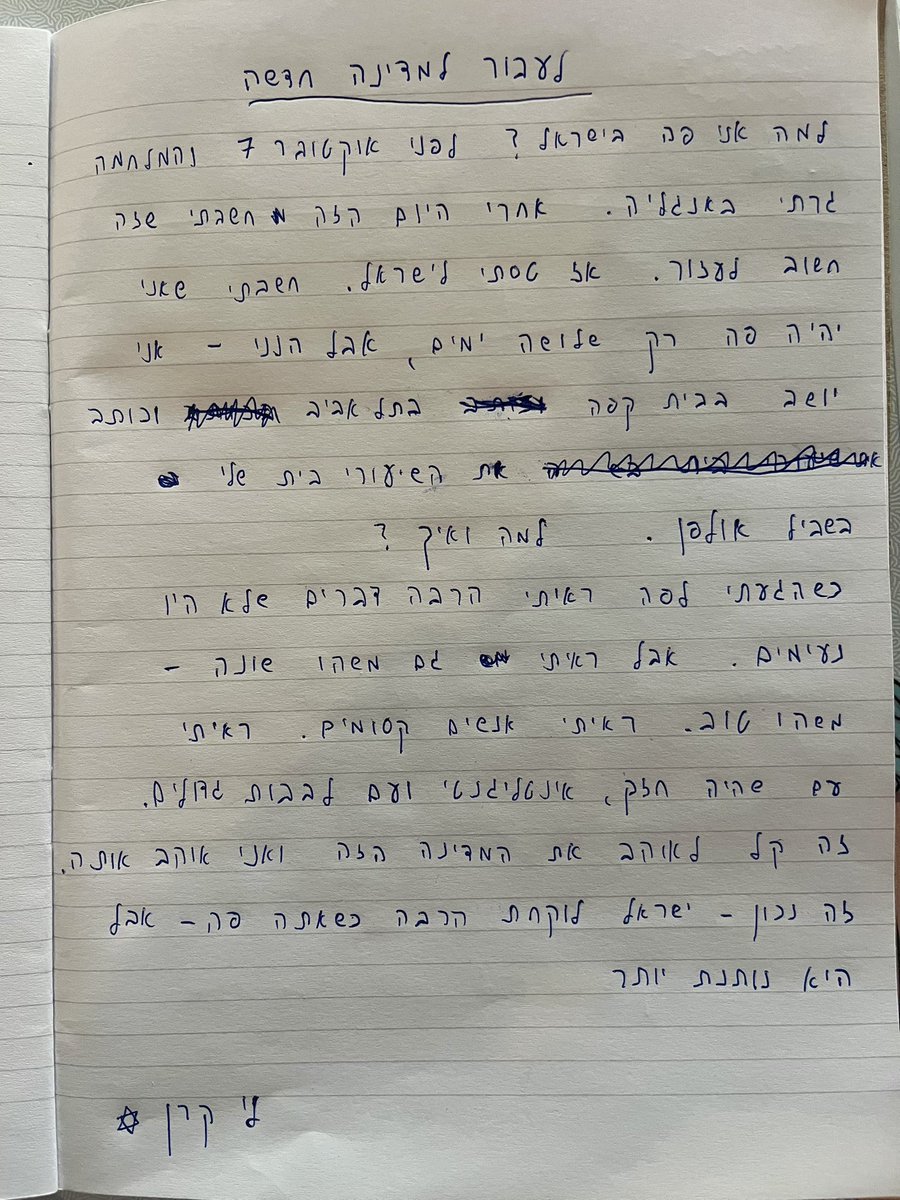 לעבור למדינה חדשה
למה אני פה בישראל? לפני אוקטובר 7 והמלחמה
גרתי באנגליה. אחרי היום הזה חשבתי שזה
חשוב לעזור. אז טסתי לישראל. חשבתי שאני
יהיה פה רק שלושה ימים, אבל הנני – אני
יושב בבית קפה בתל אביב וכותב
את השיעורי בית שלי
בשביל אולפן. למה ואיך?
כשהגעתי לפה ראיתי הרבה דברים שלא היו
נעימים. אבל ראיתי גם משהו שונה –
משהו טוב. ראיתי אנשים קסומים. ראיתי
עם שהיה חזק, אינטליגנטי ועם לבבות גדולים.
זה קל לאוקב את המדינה הזה ואני אוקב אותה.
זה נכון – ישראל לוקחת הרבה כשאתה פה – אבל
היא נותנת יותר
לי קרן